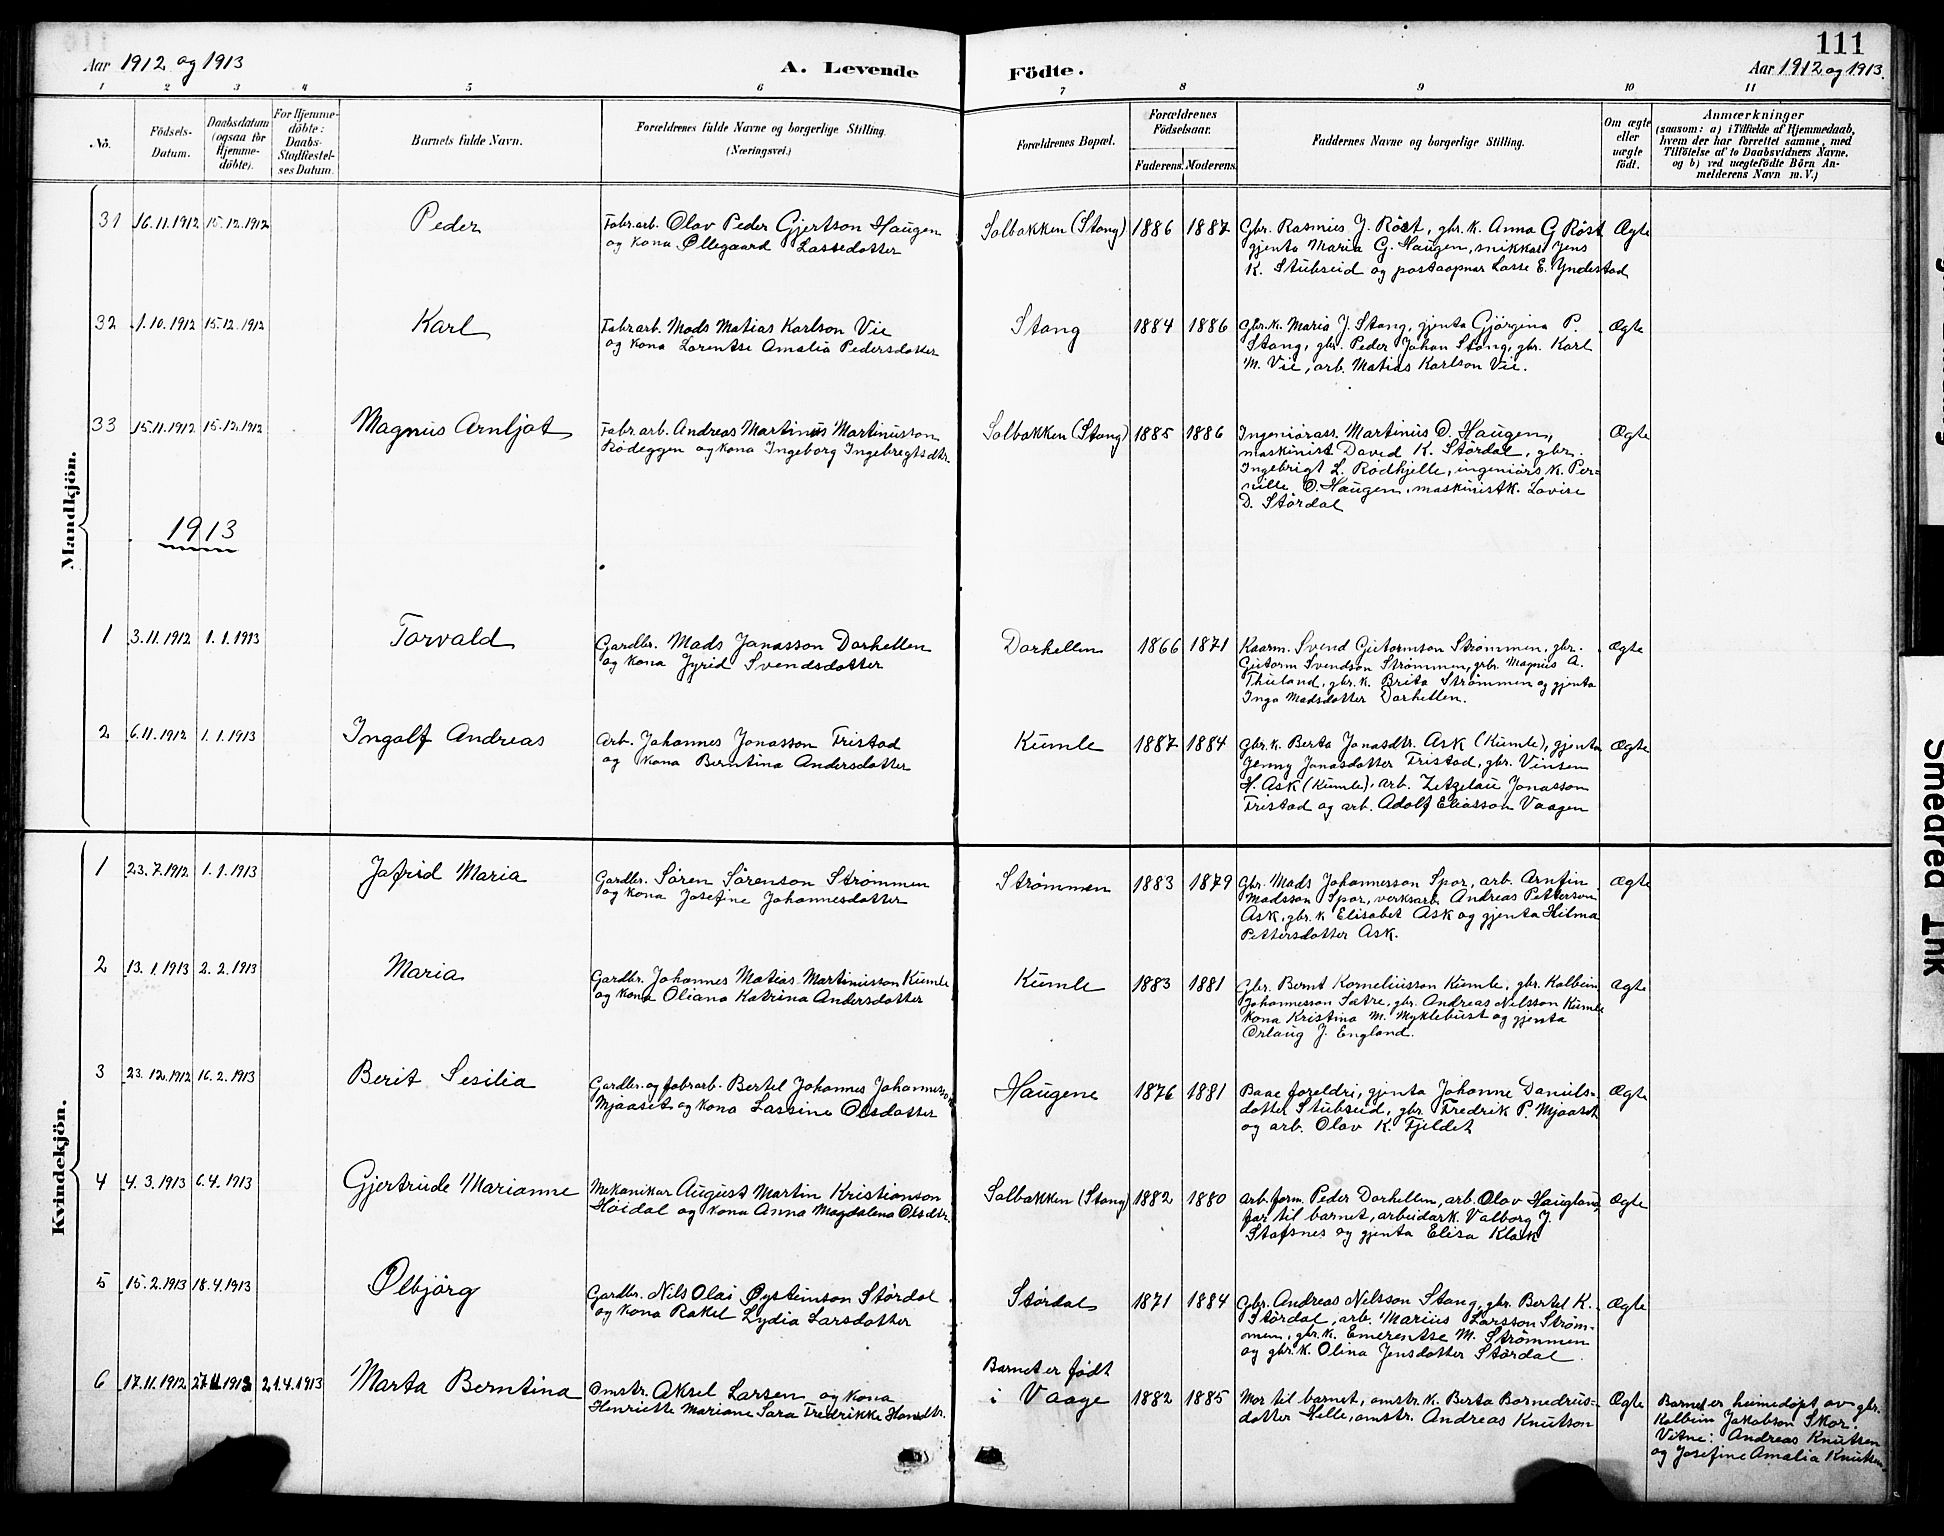 111
Aar 1912 og 1913
A. Levende Födte.
Aar 1912 og 1913.
1 2 3 4 5 6 7 8 9 10 11
No.
Födsels-
Datum.
Daabsdatum
(ogsaa for
Hjemme-
döbte).
For Hjemme-
döbte:
Daabs-
Stadfæstel-
ses Datum.
Barnets fulde Navn.
Forældrenes fulde Navne og borgerlige Stilling.
(Næringsvei.)
Forældrenes Bopæl.
Forældrenes
Födselsaar.
Faderens. Moderens.
Faddernes Navne og borgerlige Stilling.
Om ægte
eller
uægte
födt.
Anmærkninger
(saasom: a) i Tilfælde af Hjemmedaab,
hvem der har forrettet samme, med
Tilföielse af to Daabsvidners Navne.
og b) ved uægtefödte Börn An-
melderens Navn m. V.)
Mandkjön.
31 16.11.1912 15.12.1912 Peder
Fabr.arb. Olav Peder Gjertson Haugen
og kona Ollegaard Lassedotter
Solbakken (Stang) 1886 1887
Gbr. Rasmus J. Röst, gbr. k. Anna G Röst
gjenta Maria G. Haugen, snikkar Jens
K. Stubseid og postaapnar Lasse E. Yndestad
Ægte
32 1.10.1912 15.12.1912 Karl
Fabr.arb. Mads Matias Karlson Vie
og kona Lorentse Amalia Pedersdotter
Stang 1884 1886
Gbr. k. Maria J. Stang, gjenta Gjörgina P.
Stang, gbr. Peder Johan Stang, gbr. Karl
M. Vie, arb. Matias Karlson Vie.
Ægte
33 15.11.1912 15.12.1912 Magnus Arnljot
Fabr.arb. Andreas Martinus Martinusson
Rödeggen og kona Ingeborg Ingebregtsdtr.
Solbakken (Stang) 1885 1886
Ingeniörass. Martinus O. Haugen,
maskinist David K. Stördal, gbr.
Ingebrigt L. Rödhjelle, ingeniörs k. Per-
nille O. Haugen, maskinistk. Lovise
D. Stördal
Ægte
1913
1 3.11.1912 1.1.1913 Torvald
Gardbr. Mads Jonasson Dorhellen
og kona Jyrid Svendsdotter
Dorhellen 1866 1871
Kaarm. Svend Gutormson Strømmen, gbr.
Gutorm Svendson Strømmen, gbr. Magnus A.
Thuland, gbr. k. Brita Strømmen og gjenta
Inga Madsdotter Dorhellen.
Ægte
2 6.11.1912 1.1.1913 Ingolf Andreas
Arb. Johannes Jonasson Tristad
og kona Berntina Andersdotter
Kumle 1887 1884
Gbr. k. Berta Jonasdtr. Ask (Kumle), gjenta
Jenny Jonasdotter Tristad, gbr. Vinsen
H. Ask (Kumle), arb. Zetzelau Jonasson
Tristad og arb. Adolf Eliasson Vaagen
Ægte
Kvindekjön.
1 23.7.1912 1.1.1913 Jofrid Maria
Gardbr. Søren Sørenson Strømmen
og kona Josefine Johannesdotter
Strømmen 1883 1879
Gbr. Mads Johannesson Spor, arb. Arnfin
Madsson Spor, verksarb. Andreas Petterson
Ask, gbr. k Elisabet Ask og gjenta Hilma
Pettersdotter Ask.
Ægte
2 13.1.1913 2.2.1913 Maria
Gardbr. Johannes Matias Martinusson Kumle
og kona Oliana Katrina Andersdotter
Kumle 1883 1881
Gbr. Bernt Korneliusson Kumle, gbr. Kolbein
Johannesson Sætre, gbr. Andreas Nelsson Kumle
kona Kristina M. Myklebust og gjenta
Orlaug J. England.
Ægte
3 23.12.1912 16.2.1913 Berit Sesilia
Gardbr. og fabrarb. Bertel Johannes Johannesson
Mjaaset og kona Lassine Olsdotter
Haugene 1876 1881
Baae foreldri, gjenta Johanne Daniels-
dotter Stubseid, gbr. Fredrik P. Mjaaset
og arb. Olav K. Fjeldet
Ægte
4 4.3.1913 6.4.1913 Gjertrude Marianne
Mekanikar August Martin Kristianson
Höidal og kona Anna Magdalena Olsdtr.
Solbakken (Stang) 1882 1880
Arb. form. Peder Dorhellen, arb. Olav Haugland,
far til barnet, arbeidark. Valborg J.
Stafsnes og gjenta Elisa Klakk
Ægte
5 15.2.1913 18.4.1913 Olbjörg
Gardbr. Nils Olai Øysteinson Stördal
og kona Rakel Lydia Larsdotter
Stördal 1871 1884
Gbr. Andreas Nelsson Stang, gbr. Bertel K.
Stördal, arb. Marius Larsson Ström-
men, gbr. k. Emerentse M. Strömmen
og gbr. k. Olina Jensdotter Stördal.
Ægte
6 17.11.1912 27.11.1912 21.4.1913 Marta Berntina
Omstr. Aksel Larsen og kona
Henriette Mariane Sara Fredrikke Hansdtr.
Barnet er födt
i Vaage 1882 1885
Mor til barnet, omstr. k. Berta Bornedrus-
dotter Hille, omstr. Andreas Knutson
Ægte
Barnet er heimedöpt av gbr.
Kolbein Jakobson Skor.
Vitne: Andreas Knutsen
og Josefine Amalia Knutsen.
Smeared Ink